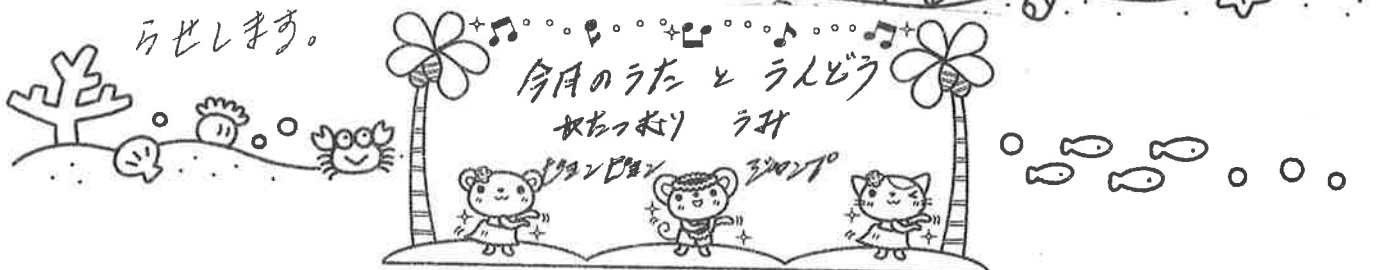 らせします。
今月のうた と うんどう
かたつむり うみ
ピョンピョン ジャンプ